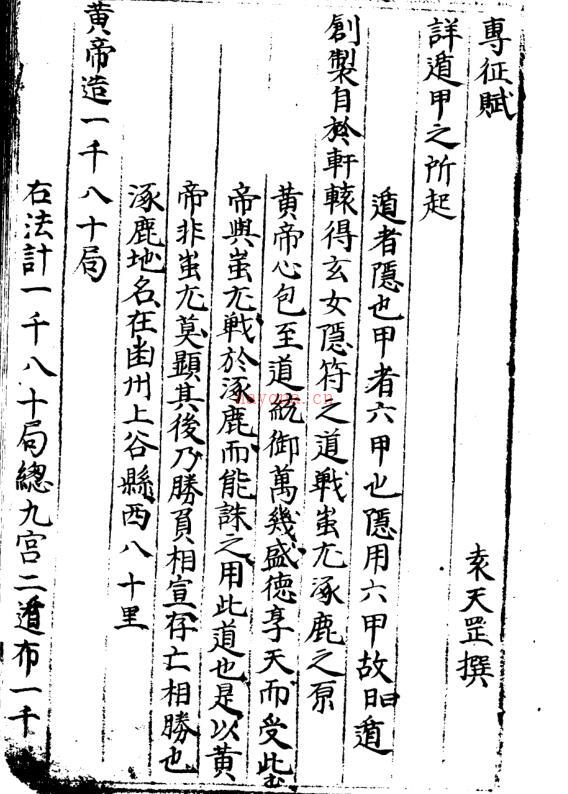 專征賦
袁天罡撰
詳遁甲之所起
遁者隱也甲者六甲也隱用六甲故曰遁
創製自於軒轅得玄女隱符之道戰蚩尤涿鹿之原
黄帝心包至道統御萬幾盛德享天而受此
帝與蚩尤戰於涿鹿而能誅之用此道也是以黄
帝非蚩尤莫顯其後乃勝負相宣存亡相勝也
涿鹿地名在幽州上谷縣西八十里
黄帝造一千八十局
右法計一千八十局總九宫二遁布一千
nayona.cn